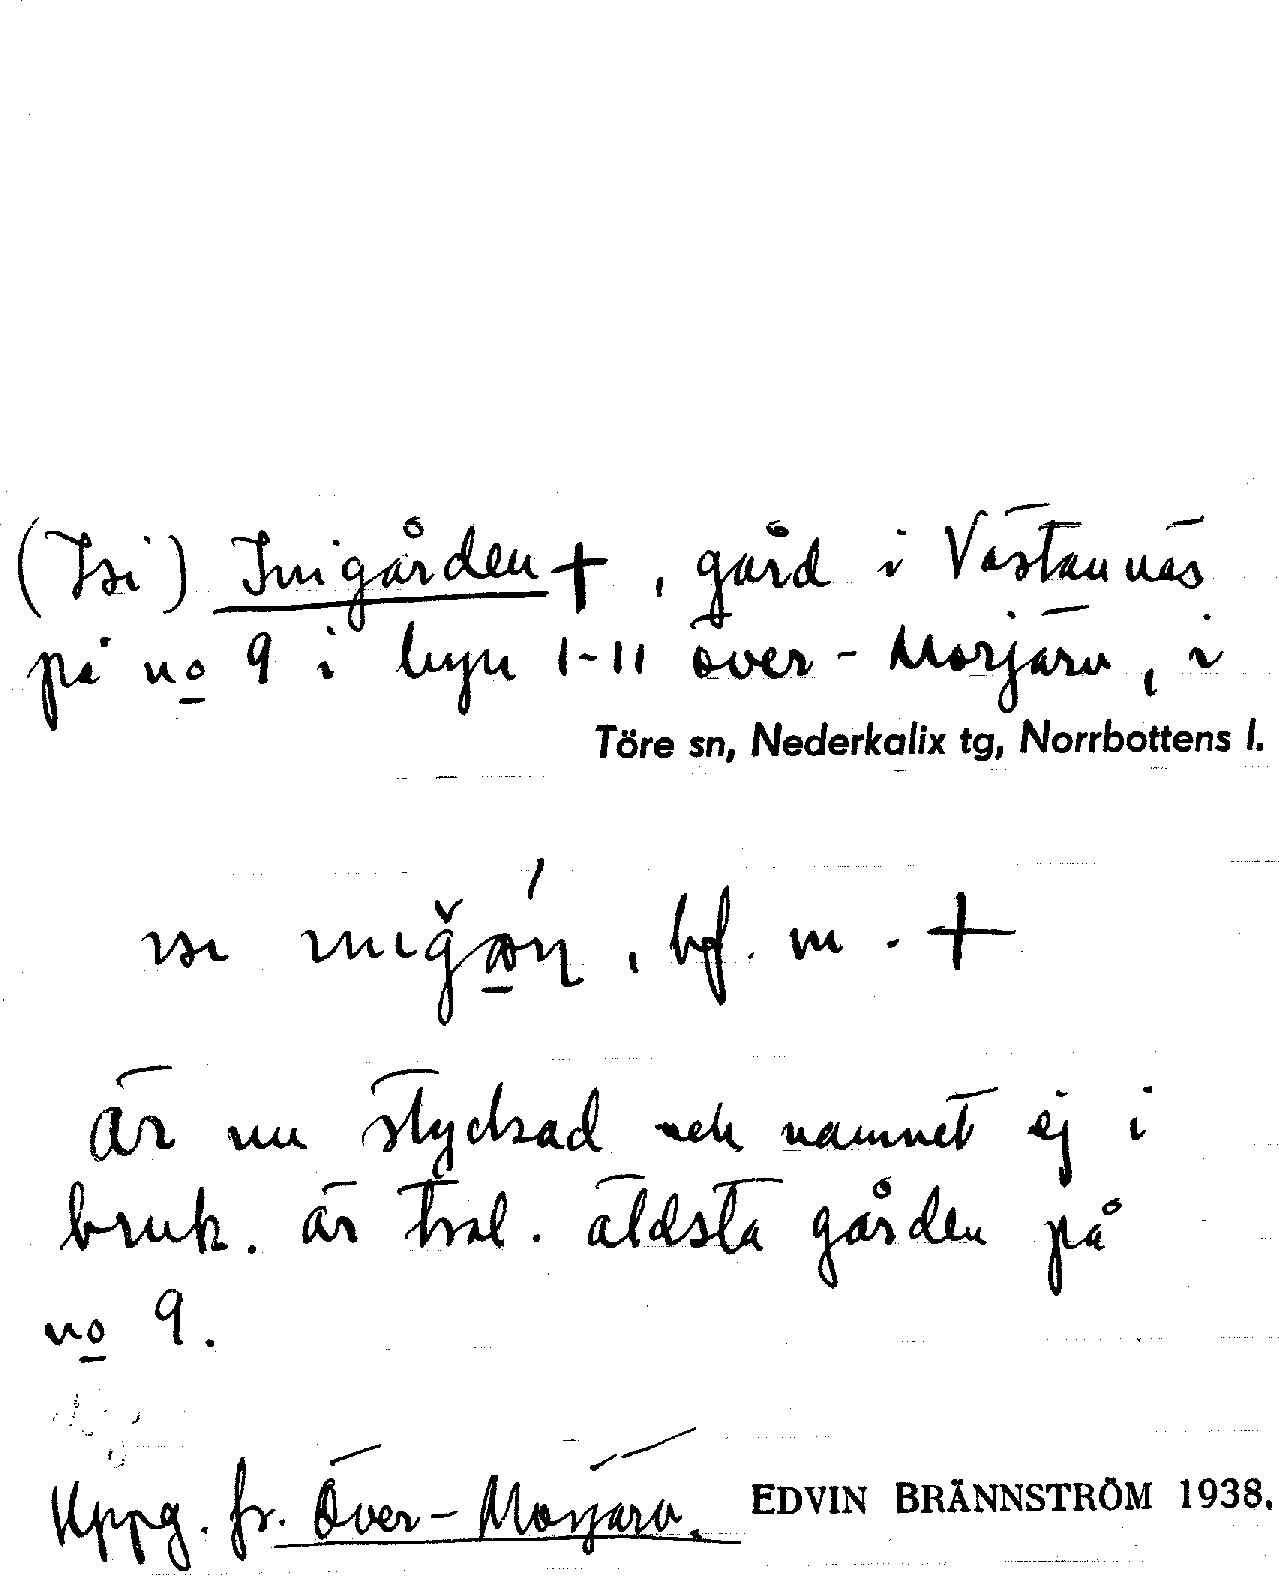 (Isi) Inigården +, gård i Västannäs
på no 9 i byn 1-11 över-Morjärv, i
Töre sn, Nederkalix tg, Norrbottens l.
bf. m. +
är nu styckad och namnet ej i
bruk. är trol. äldsta gården på
no 9.
Uppg. fr. Över-Morjärv. EDVIN BRÄNNSTRÖM 1938.